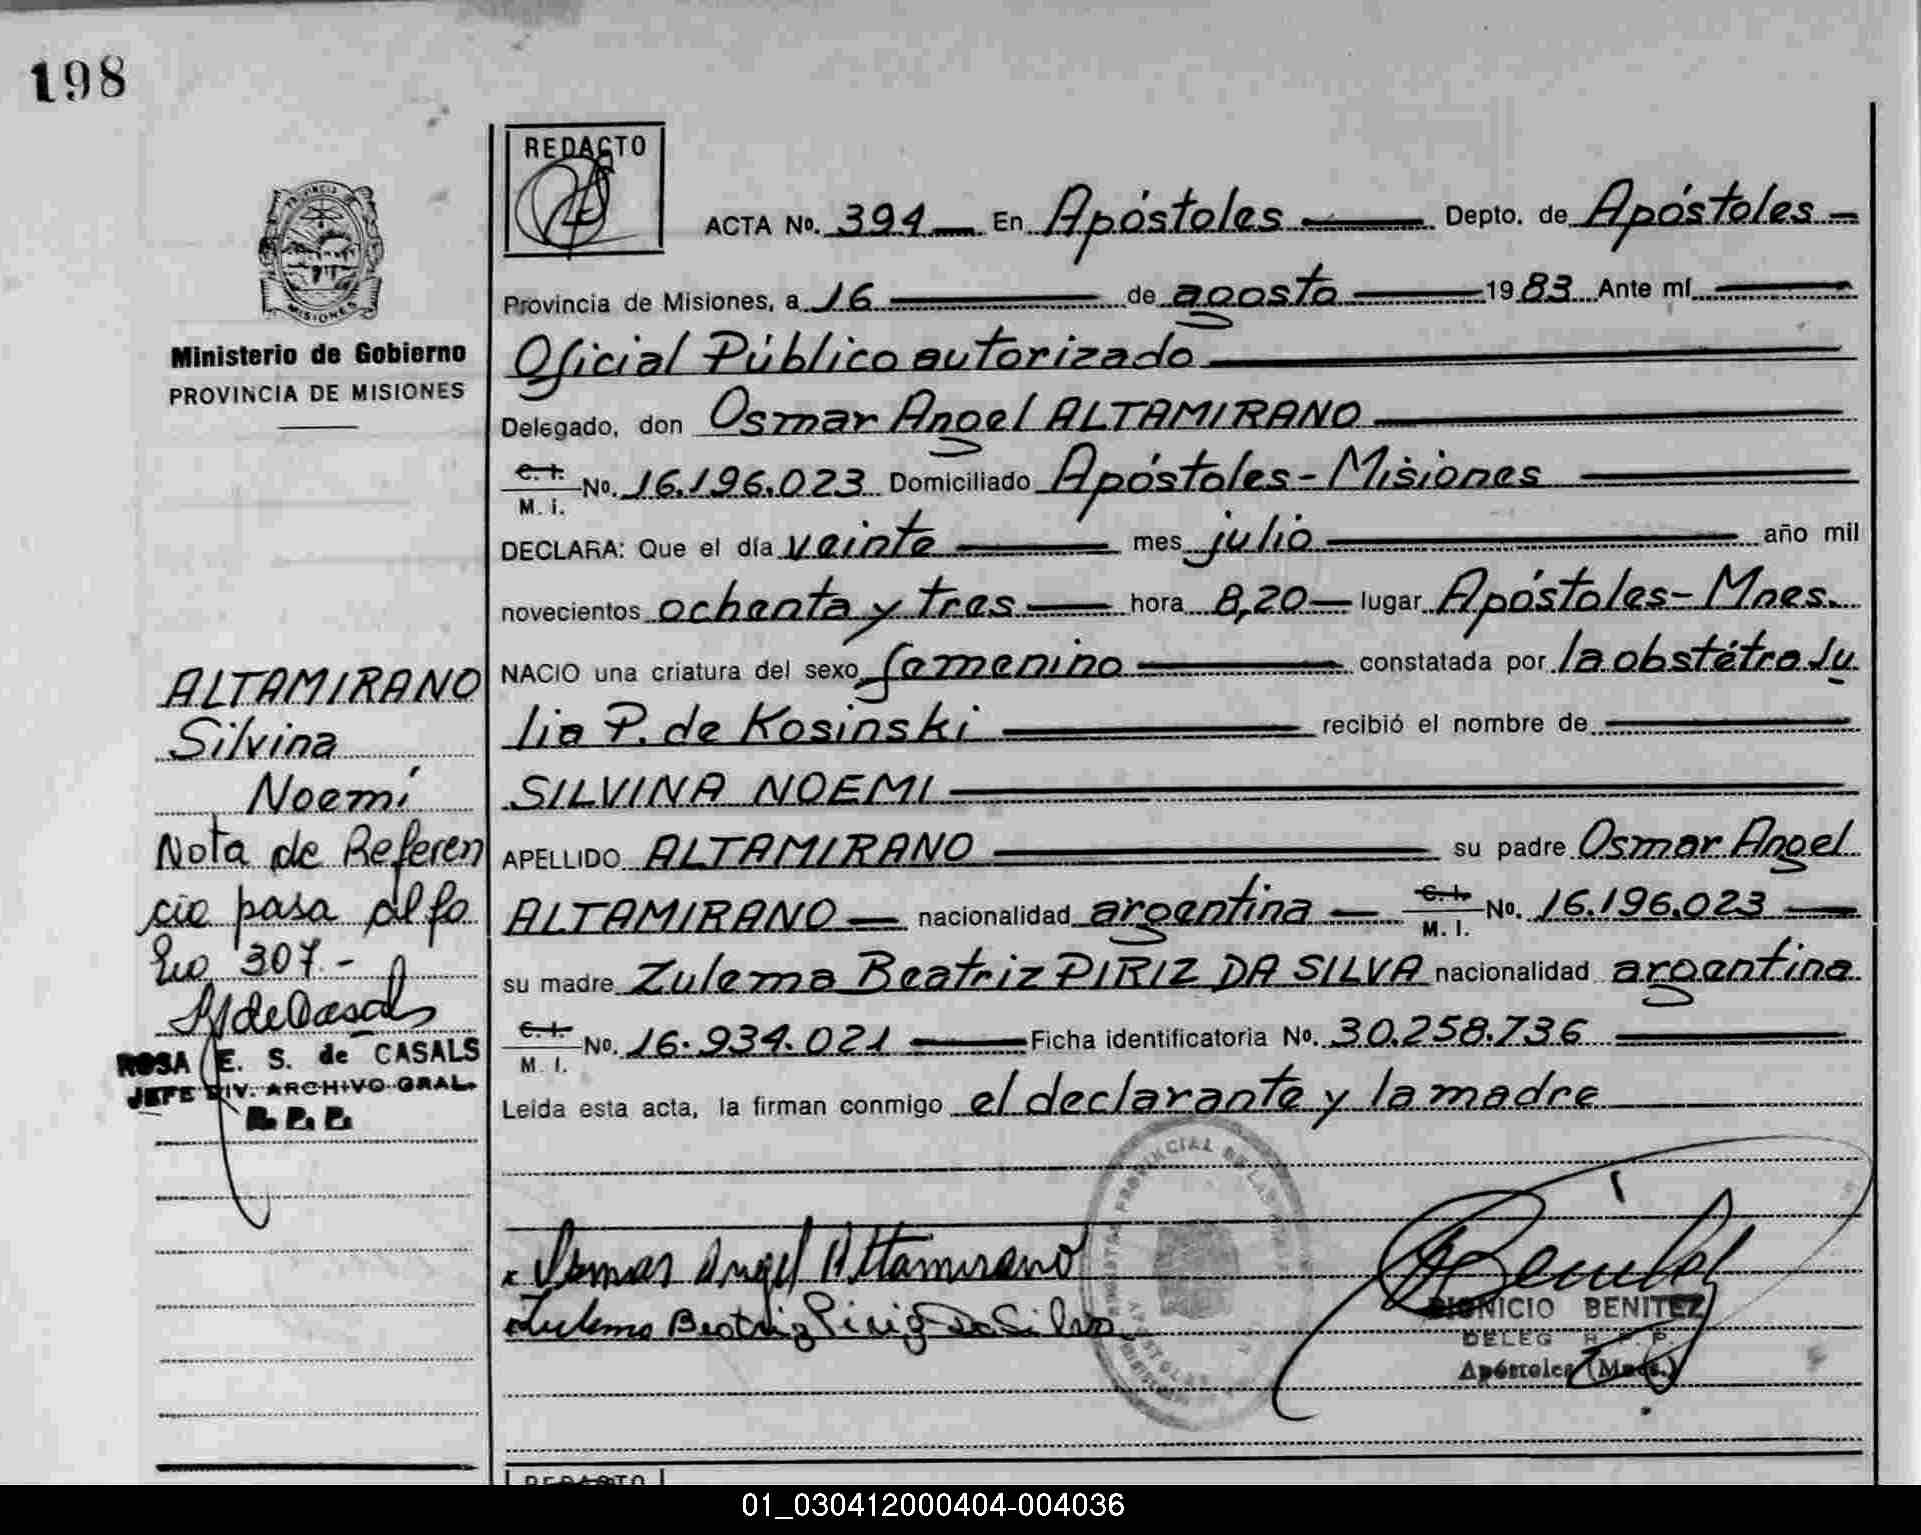 198
REDACTO
ACTA No. 394 En Apóstoles Depto. de Apóstoles
Provincia de Misiones, a 16 de agosto 1983 Ante mí
Oficial Público autorizado
Delegado, don Osmar Angel ALTAMIRANO
C. I. M. I. No. 16.196.023 Domiciliado Apóstoles - Misiones
DECLARA: Que el día veinte mes julio año mil
novecientos ochenta y tres hora 8,20 lugar Apóstoles - Mnes.
NACIO una criatura del sexo femenino constatada por la obstétra Ju
lia P. de Kosinski recibió el nombre de
SILVINA NOEMI
APELLIDO ALTAMIRANO su padre Osmar Angel
ALTAMIRANO nacionalidad argentina C. I. M. I. No. 16.196.023
su madre Zulema Beatriz PIRIZ DA SILVA nacionalidad argentina
C. I. M. I. No. 16.934.021 Ficha identificatoria No. 30.258.736
Leída esta acta, la firman conmigo el declarante y la madre
Osmar Angel Altamirano
Zulema Beatriz Piriz Da Silva
DIONICIO BENITEZ
DELEG R. P. P.
Apóstoles (Mnes.)
PROVINCIA
MISIONES
Ministerio de Gobierno
PROVINCIA DE MISIONES
ALTAMIRANO
Silvina
Noemí
Nota de Referen
cia pasa al fo
lio 307.-
ROSA E. S. de CASALS
JEFE DIV. ARCHIVO GRAL.
R. P. P.
PROVINCIAL DE LAS
APOSTOLES
REDACTO
01_030412000404-004036